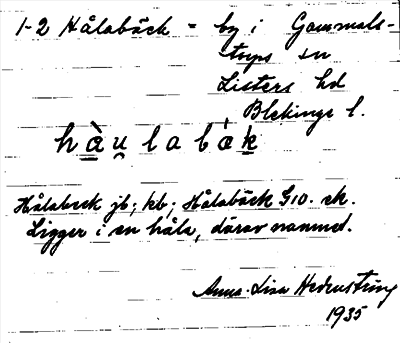 1-2 Hålabäck - by i Gammals-
torps sn
Listers hd
Blekinge l.
hàu̯labák
Hålabeck jb; kb; Hålabäck G10. ek.
Ligger i en håla, därav namnet.
Anna-Lisa Hedenström
1935